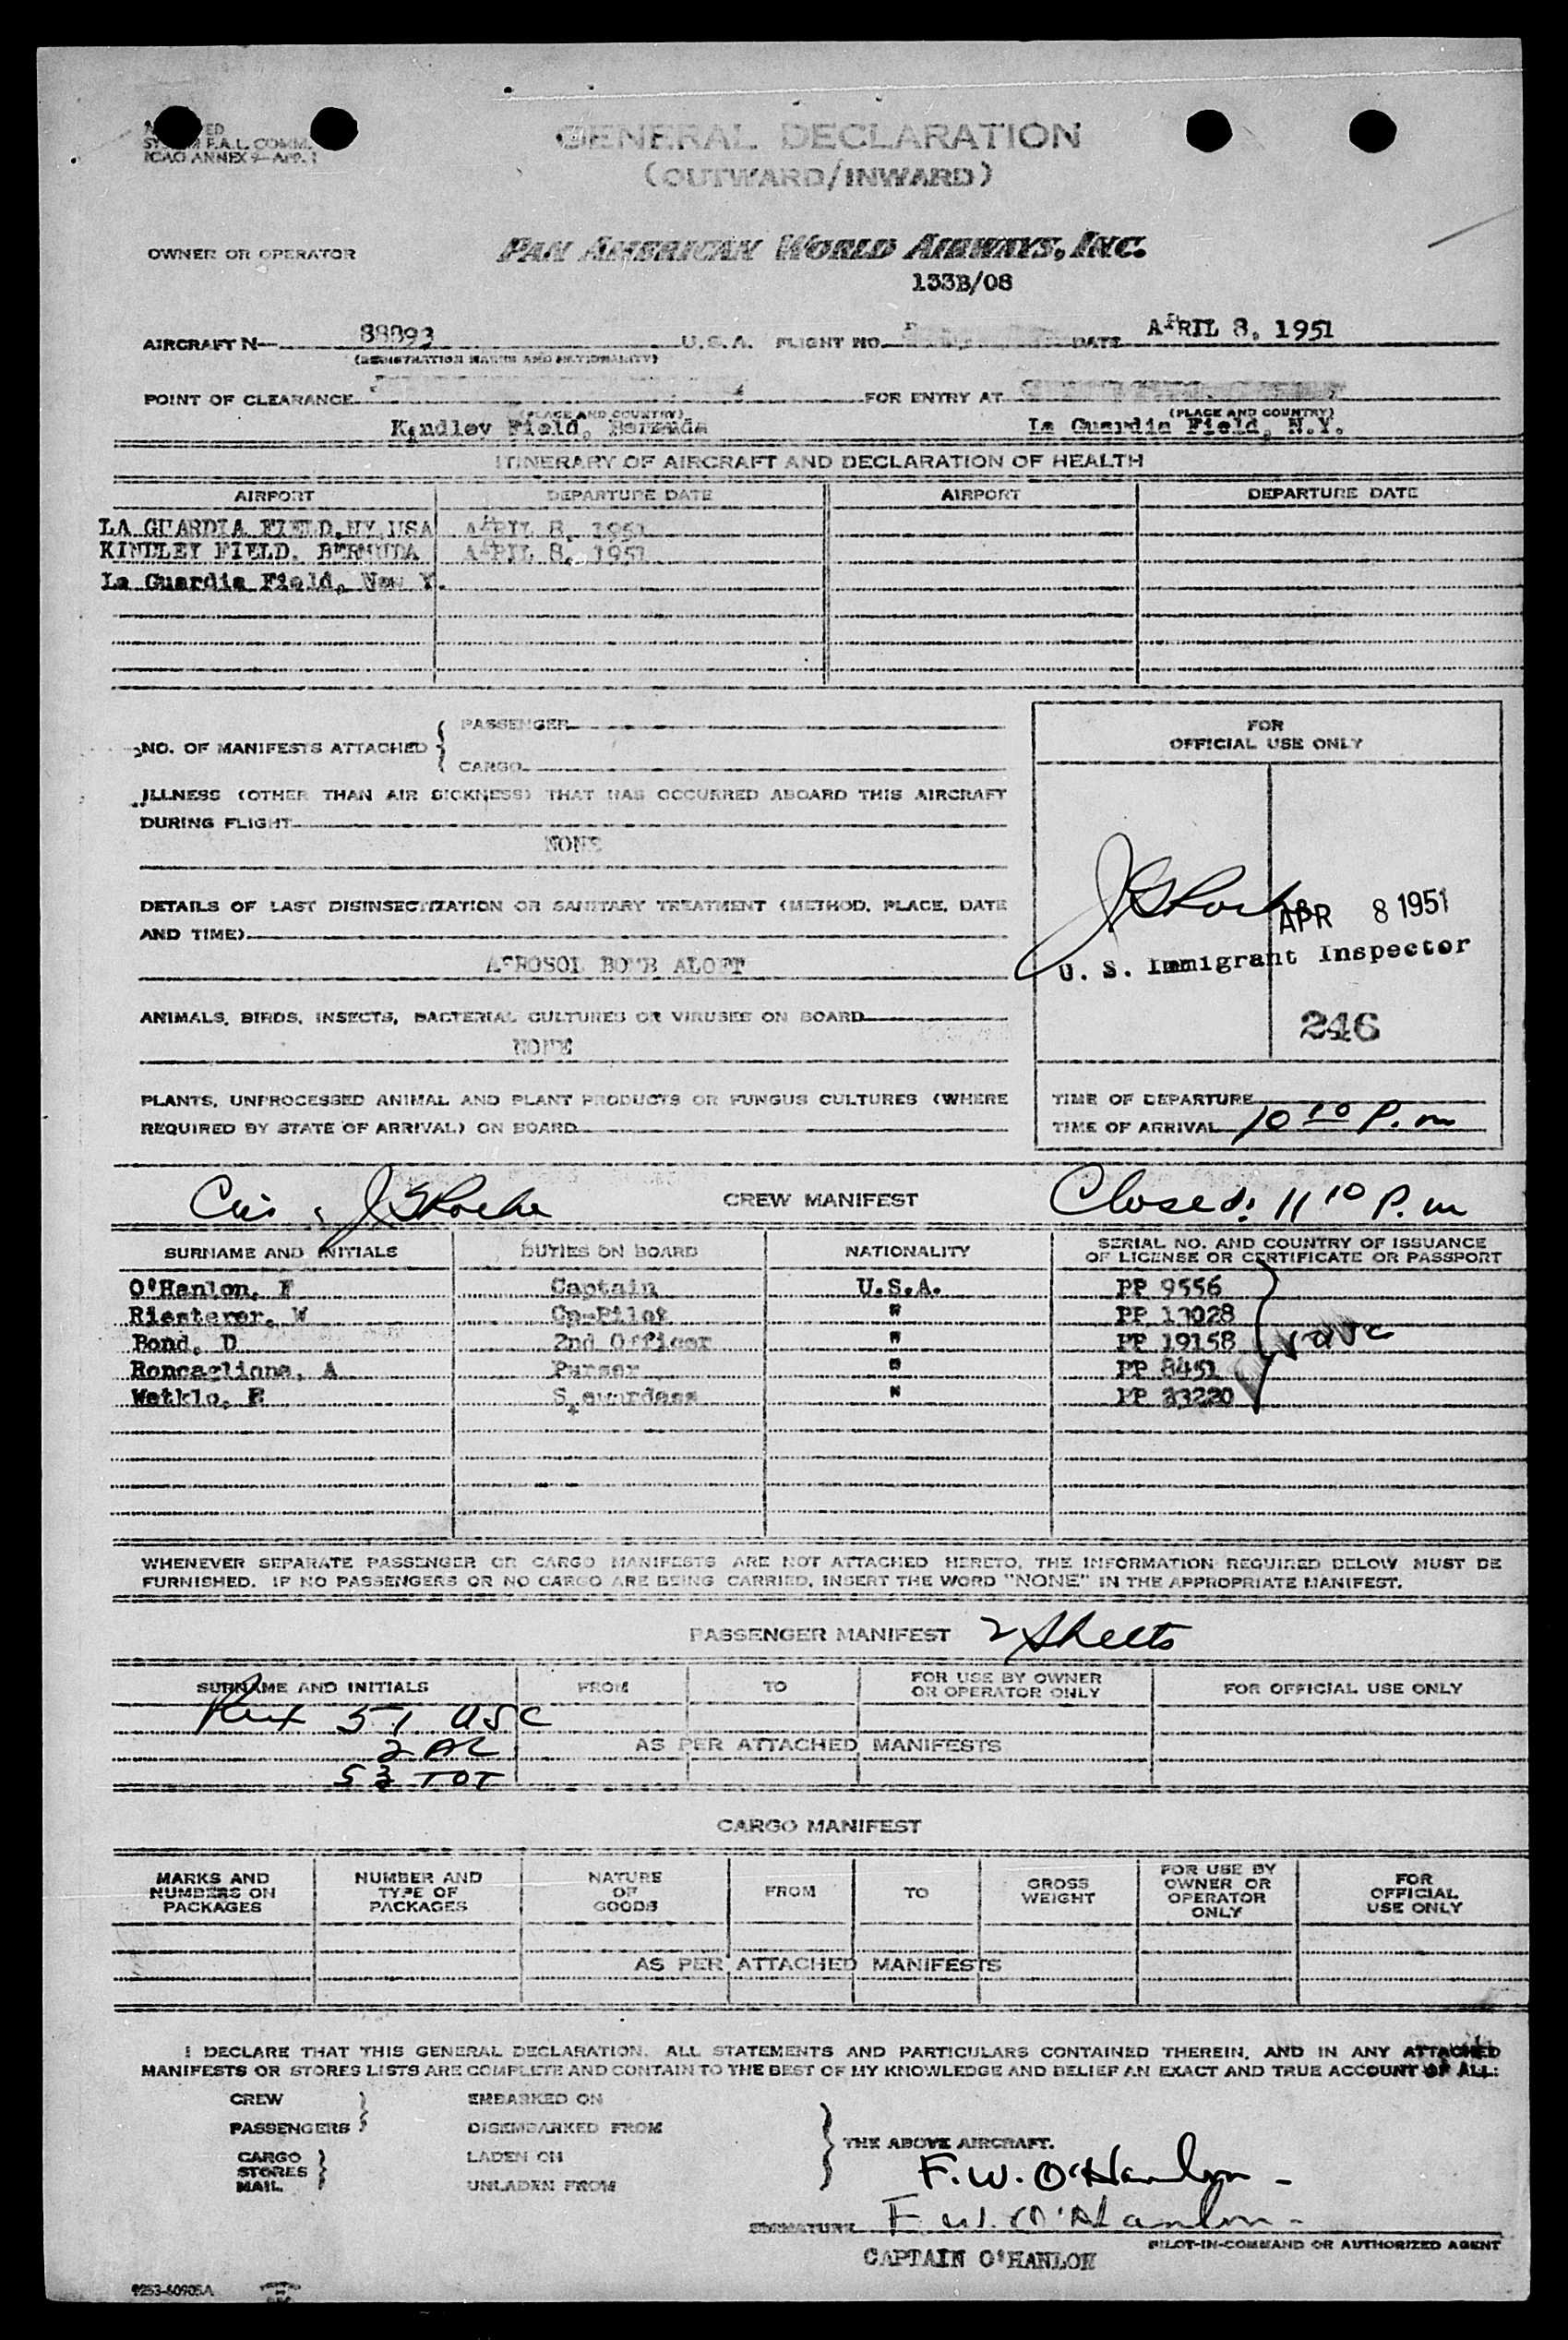 SYSTEM F.A.L. COMM.
ICAO ANNEX 9—APP. 1
GENERAL DECLARATION
(OUTWARD/INWARD)
OWNER OR OPERATOR PAN AMERICAN WORLD AIRWAYS, INC.
133B/08
AIRCRAFT N— 88893 U.S.A. FLIGHT NO. DATE APRIL 8, 1951
(REGISTRATION MARKS AND NATIONALITY)
POINT OF CLEARANCE FOR ENTRY AT
(PLACE AND COUNTRY) (PLACE AND COUNTRY)
Kindley Field, Bermuda La Guardia Field, N.Y.
ITINERARY OF AIRCRAFT AND DECLARATION OF HEALTH
AIRPORT DEPARTURE DATE AIRPORT DEPARTURE DATE
LA GUARDIA FIELD, NY USA APRIL 8, 1951
KINDLEY FIELD, BERMUDA APRIL 8, 1951
La Guardia Field, New Y.
NO. OF MANIFESTS ATTACHED { PASSENGER
CARGO
FOR
OFFICIAL USE ONLY
ILLNESS (OTHER THAN AIR SICKNESS) THAT HAS OCCURRED ABOARD THIS AIRCRAFT
DURING FLIGHT
NONE
DETAILS OF LAST DISINSECTIZATION OR SANITARY TREATMENT (METHOD, PLACE, DATE
AND TIME)
AEROSOL BOMB ALOFT
J G Roche APR 8 1951
U. S. Immigrant Inspector
246
ANIMALS, BIRDS, INSECTS, BACTERIAL CULTURES OR VIRUSES ON BOARD
NONE
PLANTS, UNPROCESSED ANIMAL AND PLANT PRODUCTS OR FUNGUS CULTURES (WHERE
REQUIRED BY STATE OF ARRIVAL) ON BOARD
TIME OF DEPARTURE
TIME OF ARRIVAL 10 10 P.m
J G Roche CREW MANIFEST Closed: 11 10 P.m
SURNAME AND INITIALS DUTIES ON BOARD NATIONALITY SERIAL NO. AND COUNTRY OF ISSUANCE
OF LICENSE OR CERTIFICATE OR PASSPORT
O'Hanlon, F Captain U.S.A. PP 9556
Riesterer, W Co-Pilot " PP 13028
Bond, D 2nd Officer " PP 19158 5 USC
Roncaglione, A Purser " PP 8451
Watklo, E Stewardess " PP 23220
WHENEVER SEPARATE PASSENGER OR CARGO MANIFESTS ARE NOT ATTACHED HERETO, THE INFORMATION REQUIRED BELOW MUST BE
FURNISHED. IF NO PASSENGERS OR NO CARGO ARE BEING CARRIED, INSERT THE WORD "NONE" IN THE APPROPRIATE MANIFEST.
PASSENGER MANIFEST 2 Sheets
SURNAME AND INITIALS FROM TO FOR USE BY OWNER
OR OPERATOR ONLY FOR OFFICIAL USE ONLY
51 USC
2 AL AS PER ATTACHED MANIFESTS
53 TOT
CARGO MANIFEST
MARKS AND
NUMBERS ON
PACKAGES NUMBER AND
TYPE OF
PACKAGES NATURE
OF
GOODS FROM TO GROSS
WEIGHT FOR USE BY
OWNER OR
OPERATOR
ONLY FOR
OFFICIAL
USE ONLY
AS PER ATTACHED MANIFESTS
I DECLARE THAT THIS GENERAL DECLARATION, ALL STATEMENTS AND PARTICULARS CONTAINED THEREIN, AND IN ANY ATTACHED
MANIFESTS OR STORES LISTS ARE COMPLETE AND CONTAIN TO THE BEST OF MY KNOWLEDGE AND BELIEF AN EXACT AND TRUE ACCOUNT OF ALL:
CREW EMBARKED ON
PASSENGERS DISEMBARKED FROM
THE ABOVE AIRCRAFT.
CARGO LADEN ON
STORES
MAIL UNLADEN FROM
F.W. O'Hanlon
SIGNATURE F.W. O'Hanlon
PILOT-IN-COMMAND OR AUTHORIZED AGENT
CAPTAIN O'HANLON
9253-60905A